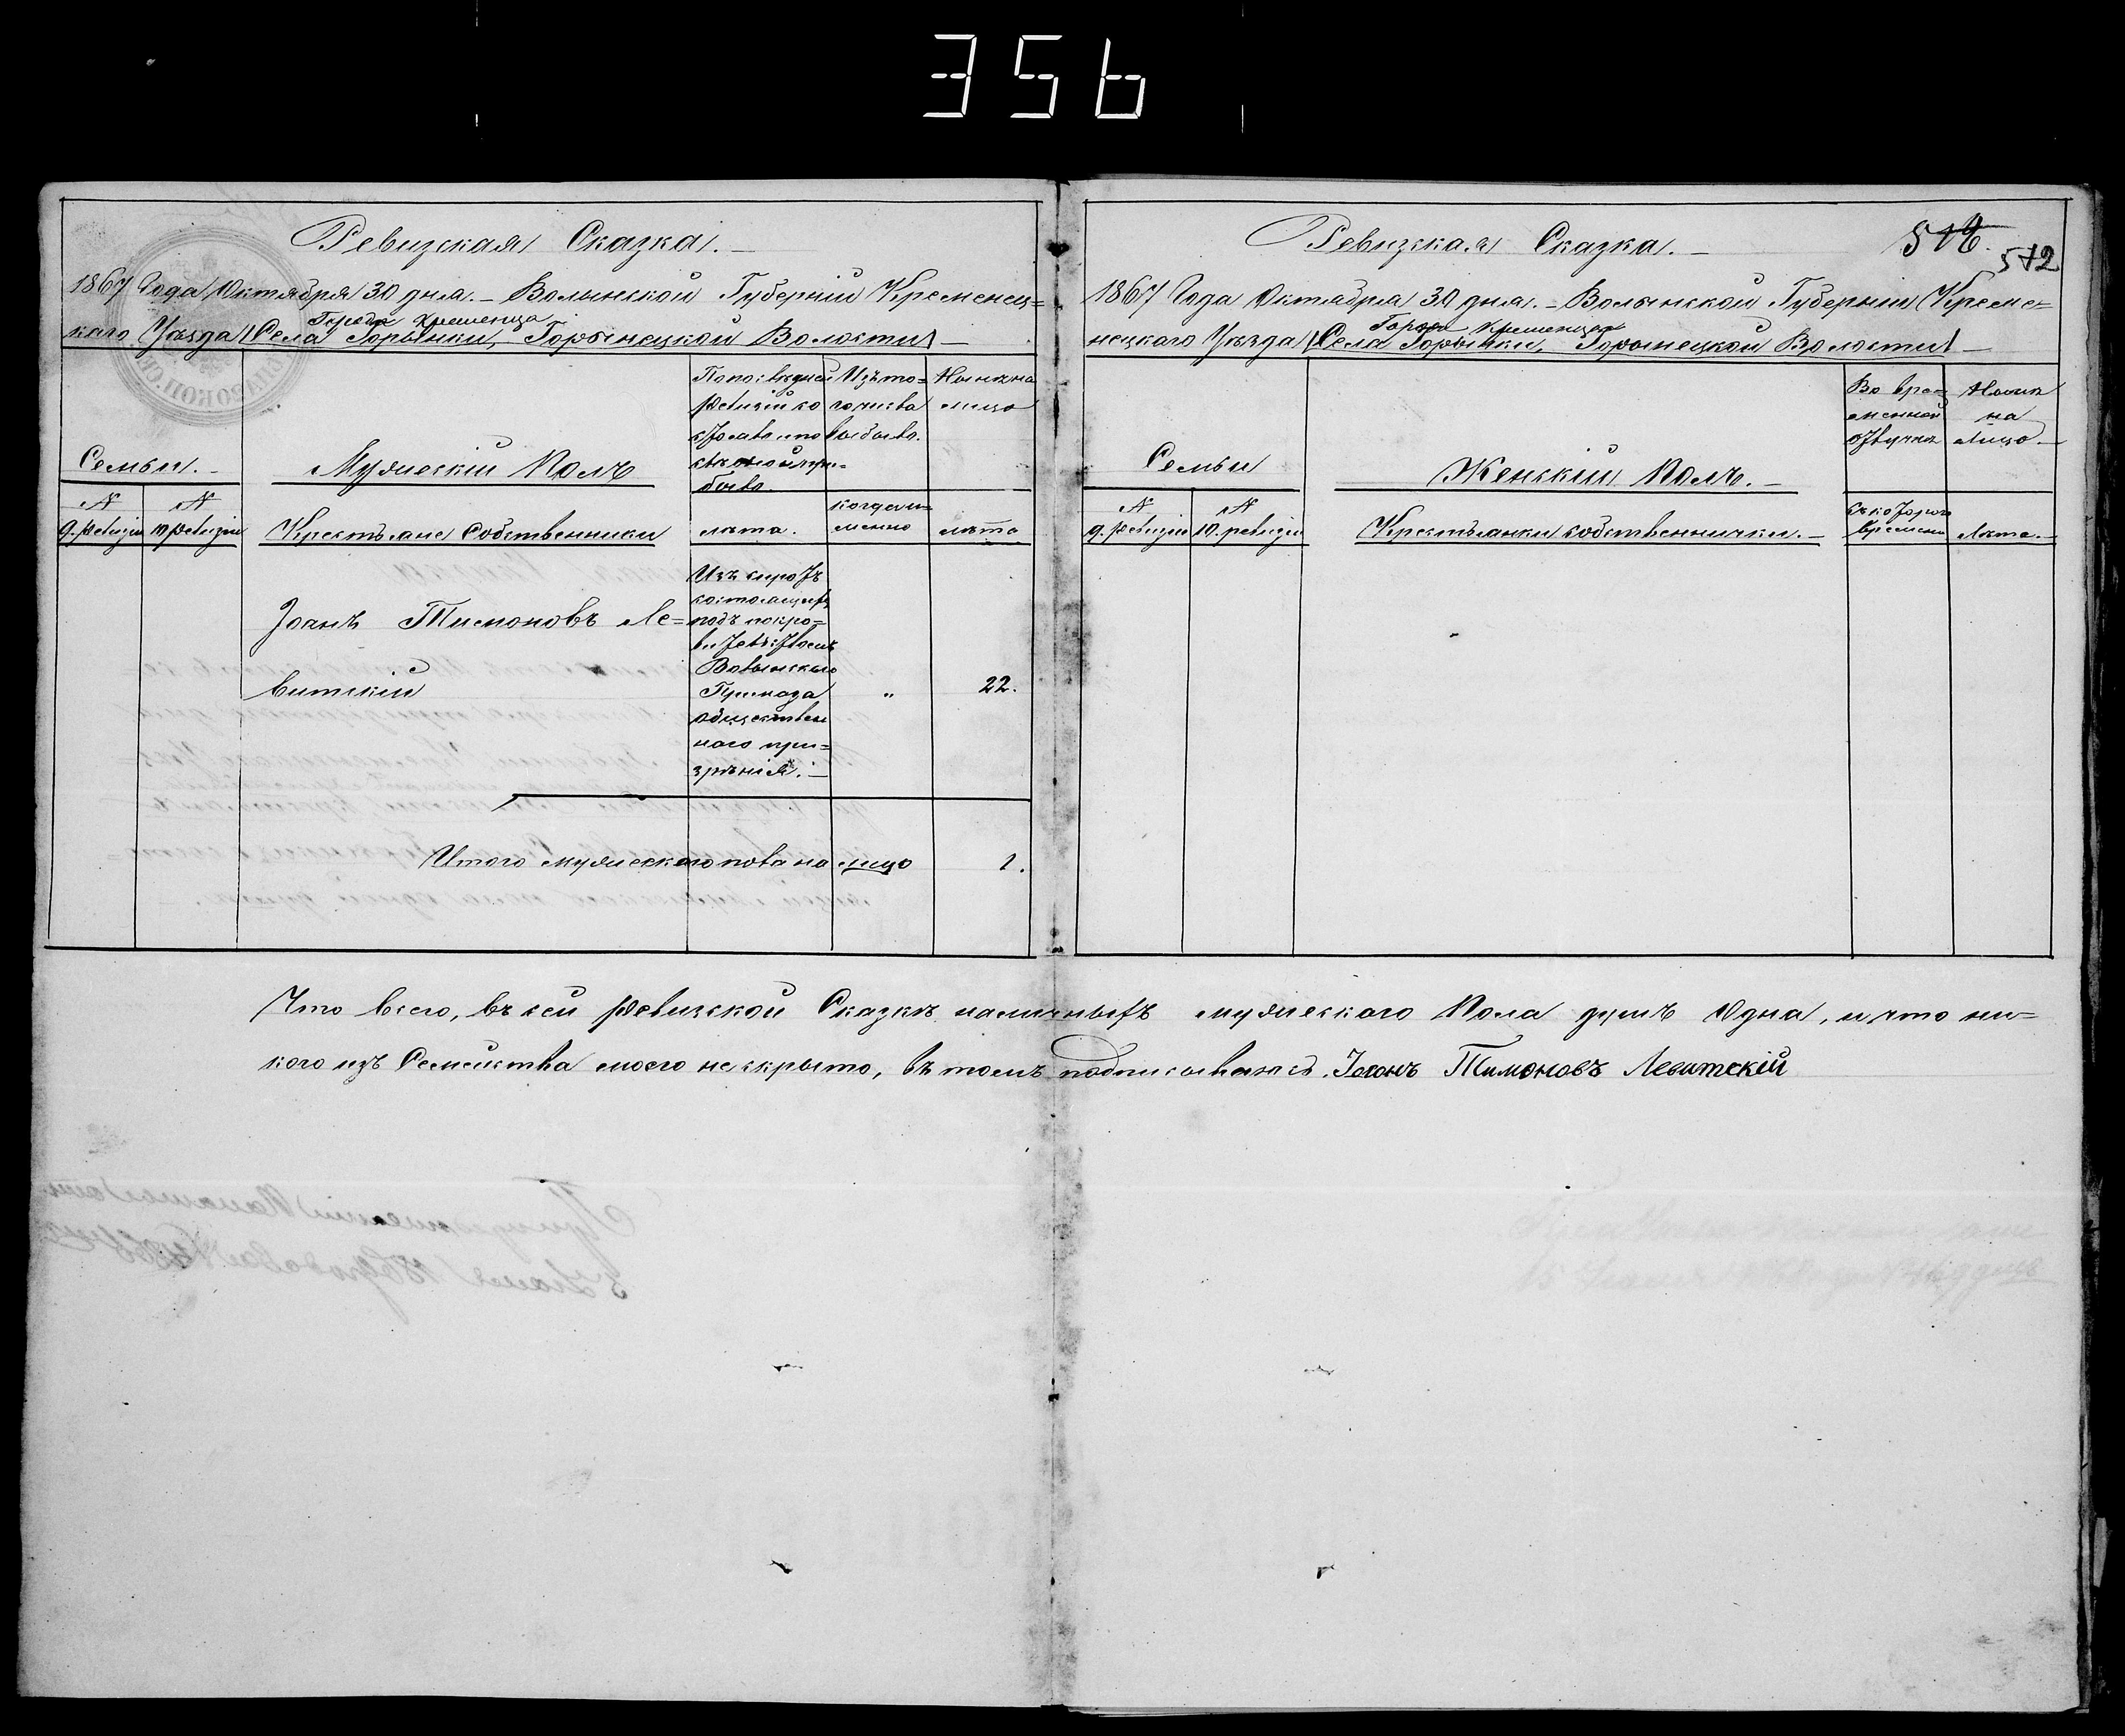 356
Ревизская Сказка. –
1867 Года Октября 30 дня. – Волынской Губерніи Кременец=
Города Кременца
каго Уѣзда Села Горынки, Горынецкой Волости –
Семьи. –
№ 9. ревизіи
№ 10 ревизіи
Мужескій Полъ
Крестьяне Собственники
лѣта.
Изъ то=
го числа
выбыло.
когда и=
менно
Нынѣ на
лицо
лѣта
Іоанъ Тимоновъ Ле=
витскій
Изъ сиротъ
состоящихъ
подъ покро=
вительством
Волынскаго
Приказа
обществен
наго при=
зрѣнія. –
"
22.
Итого мужескаго пола на лицо 1.
Ревизская Сказка. –
512
1867 Года Октября 30 дня. – Волынской Губерніи Креме=
Города Кременца
нецкаго Уѣзда Села Горынки, Горынецкой Волости –
Семьи
№ 9. ревизіи
№ 10. ревизіи
Женскій Полъ. –
Крестьянки собственнички. –
Во вре=
менной
отлучкѣ
съ котораго
времени
Нынѣ
на
лицо. –
Лѣта. –
Что всего, въ сей ревизской Сказкѣ наличныхъ мужескаго Пола душъ Одна, и что ни=
кого изъ Семейства моего не скрыто, въ томъ подписываюсь. Іоанъ Тимоновъ Левитскій